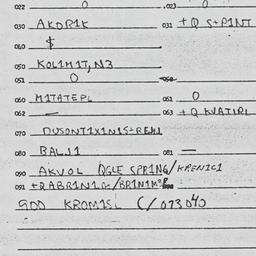 022 0 023 0
030 AKDR1K 031 +Q S+P1NT
040 $
050 KOL1M1T, N3
051 0 052
060 M1TATEPL 061 0
062 — 063 +Q KVAT1RL
070 DUSONT1X1N1S+REHL
080 BALJ1 081 —
090 AKVOL QGLE SPR1NG/KREN1C1
091
GOD KROM1SL C/073040